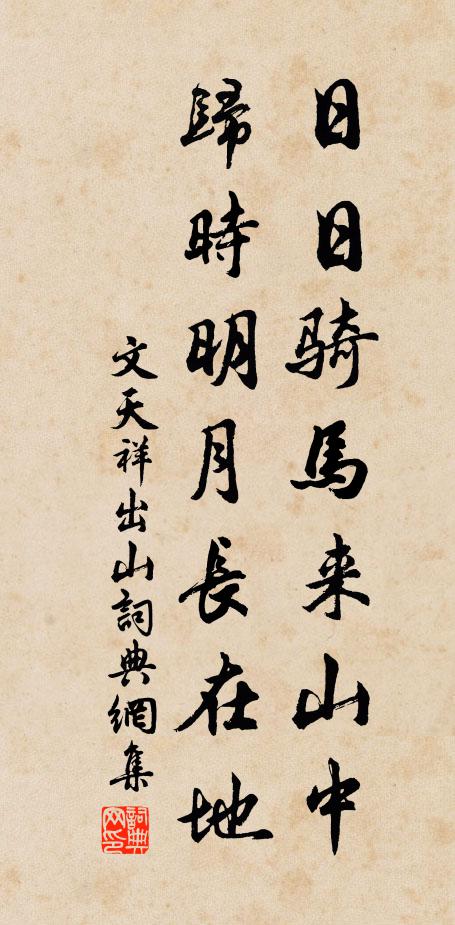 日日骑馬来山中
歸時明月長在地
文天祥出山詞典網集
詞典
网印